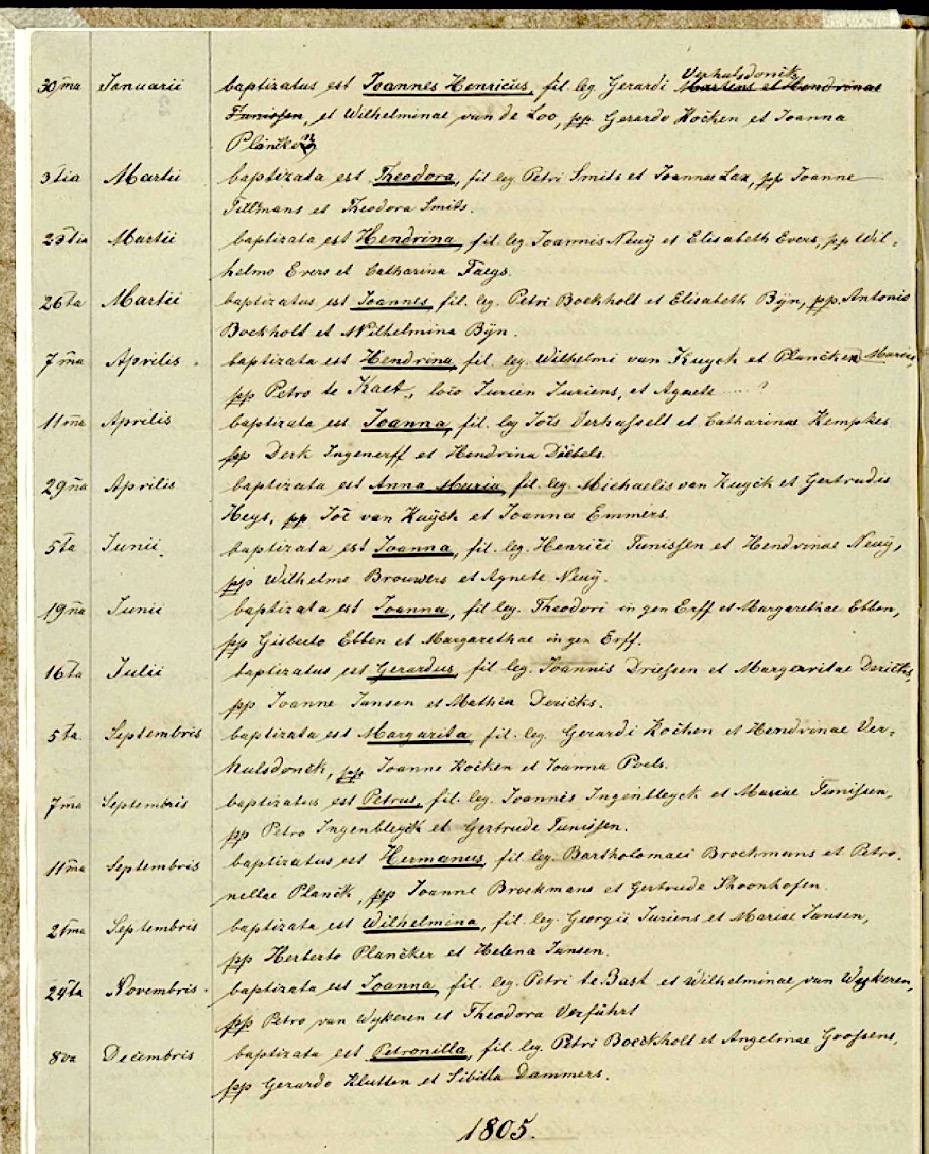 Verhulsdonck
30ma Januarii baptizatus est Joannes Henricus, fil. leg. Gerardi Martens et Hendrinae
Tunissen, et Wilhelminae van de Loo, pp. Gerardo Kocken et Joanna
Plancken
3tia Martii baptizata est Theodora, fil. leg. Petri Smits et Joannae Lax, pp Joanne
Tillmans et Theodora Smits.
23tia Martii baptizata est Hendrina, fil. leg. Joannis Neuÿ et Elisabeth Evers, pp Wil=
helmo Evers et Catharina Faegs.
26ta Martii baptizatus est Joannes, fil. leg. Petri Boekholt et Elisabeth Bÿn, pp. Antonio
Boekholt et Wilhelmina Bÿn.
7ma Aprilis. baptizata est Hendrina, fil. leg. Wilhelmi van Kuyck et Plancken Mariae,
pp Petro de Kaet, loco Jurien Juriens, et Agnete ..... ?
11ma Aprilis baptizata est Joanna, fil. leg Jois Verhasselt et Catharinae Kempkes
pp Derk Ingenerff et Hendrina Diebels.
29na Aprilis baptizata est Anna Maria, fil. leg. Michaelis van Kuyck et Gertrudis
Heys, pp Joe van Kuÿck et Joanna Emmers.
5ta Junii. baptizata est Joanna, fil. leg. Henrici Tunissen et Hendrinae Neuÿ,
pp Wilhelmo Brouwers et Agnete Neuÿ.
19na Junii baptizata est Joanna, fil. leg. Theodori in gen Erff et Margarethae Ebben,
pp Gisberto Ebben et Margarethae in gen Erff.
16ta Julii baptizatus est Gerardus, fil. leg. Joannis Driessen et Margaritae Dericks,
pp Joanne Jansen et Mathia Dericks.
5ta Septembris baptizata est Margarita, fil. leg. Gerardi Kochen et Hendrinae Ver=
hulsdonck, pp Joanne Kocken et Joanna Poels.
7ma Septembris baptizatus est Petrus, fil. leg. Joannis Ingenbleyck et Mariae Tunissen,
pp Petro Ingenbleyck et Gertrude Tunissen.
11ma Septembris baptizatus est Hermanus, fil. leg. Bartholomaei Broekmans et Petro.
nellae Planck, pp Joanne Broekmans et Gertrude Shoonhofen.
21ma Septembris baptizata est Wilhelmina, fil. leg. Georgii Juriens et Mariae Jansen,
pp Herberto Plancker et Helena Jansen.
24ta Novembris. baptizata est Joanna, fil. leg. Petri te Bast et Wilhelminae van Wykeren,
pp Petro van Wykeren et Theodora Verführt
8va Decembris baptizata est Petronilla, fil. leg. Petri Boeckholt et Angelinae Goossens,
pp Gerardo Klutten et Sibilla Dammers.
1805.